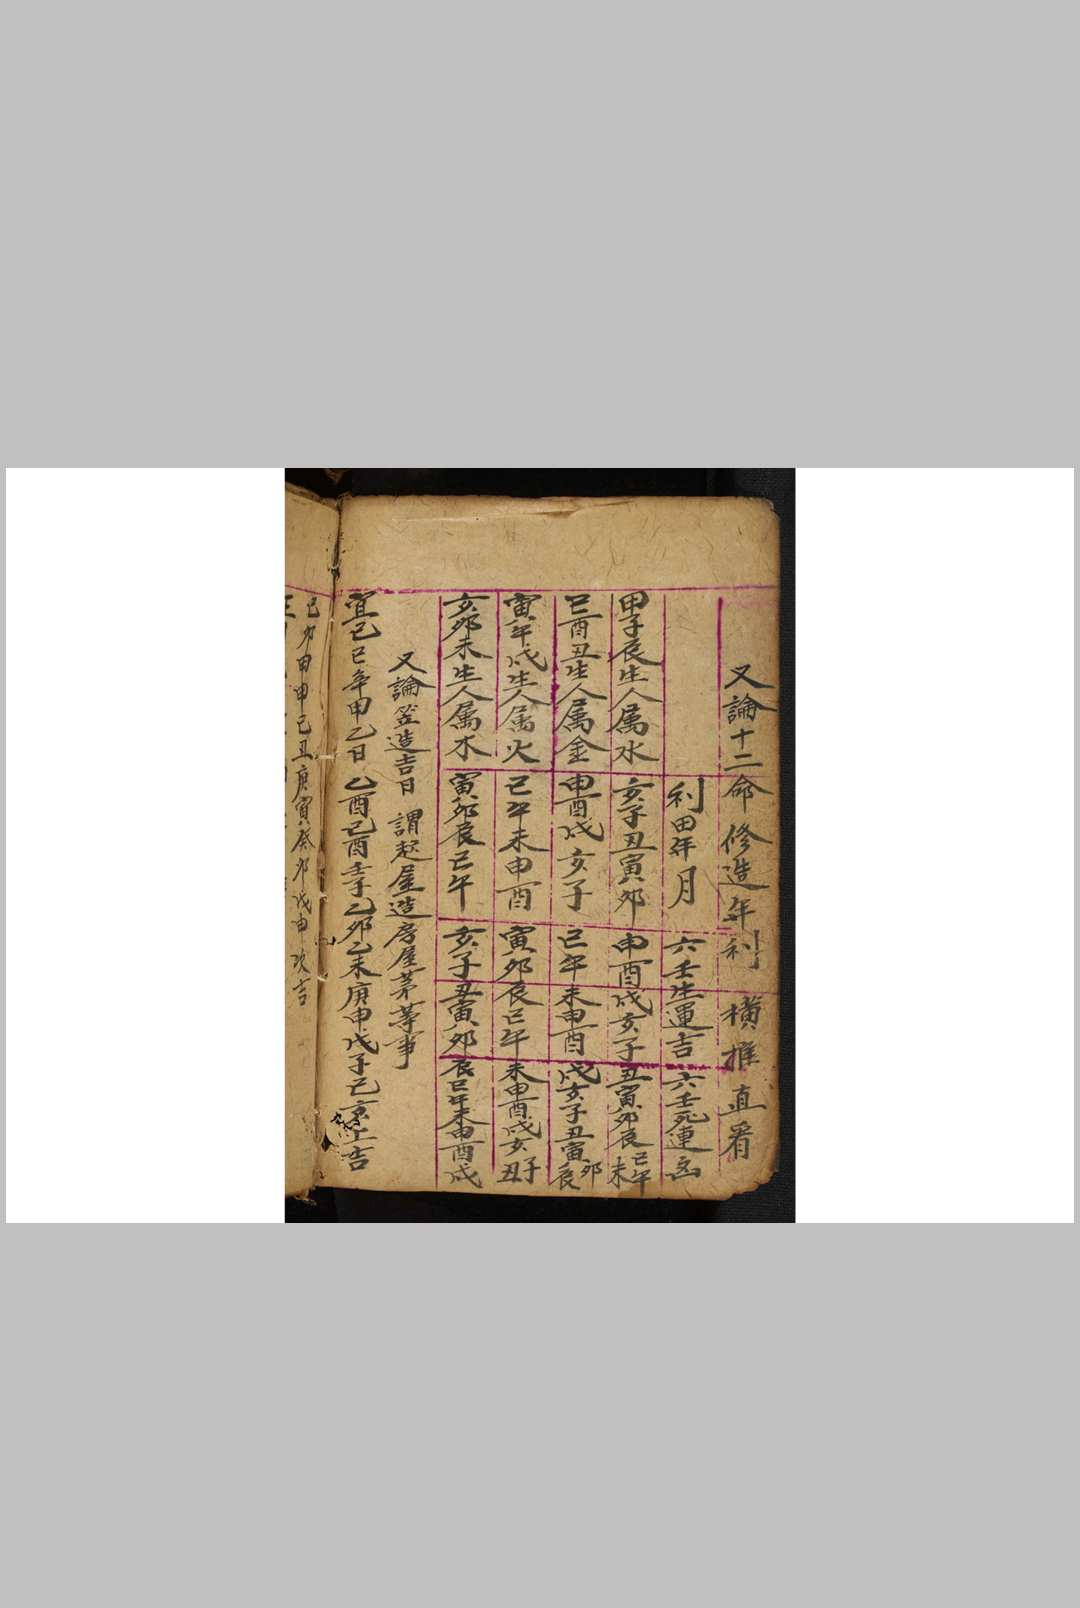 又論十二命修造年利 橫推直看
利田年月 六壬生運吉 六壬死連凶
甲子辰生人属水 亥子丑寅卯 申酉戌亥子 丑寅卯辰巳午未
巳酉丑生人属金 申酉戌亥子 巳午未申酉 戌亥子丑寅卯辰
寅午戌生人属火 巳午未申酉 寅卯辰巳午 未申酉戌亥子丑
亥卯未生人属木 寅卯辰巳午 亥子丑寅卯 辰巳午未申酉戌
又論竖造吉日 謂起屋造房屋茅等事
宜己巳辛 甲乙日 乙酉己酉壬子乙卯乙未庚申戊子己亥上吉
己卯甲申己丑庚寅癸卯戊申次吉